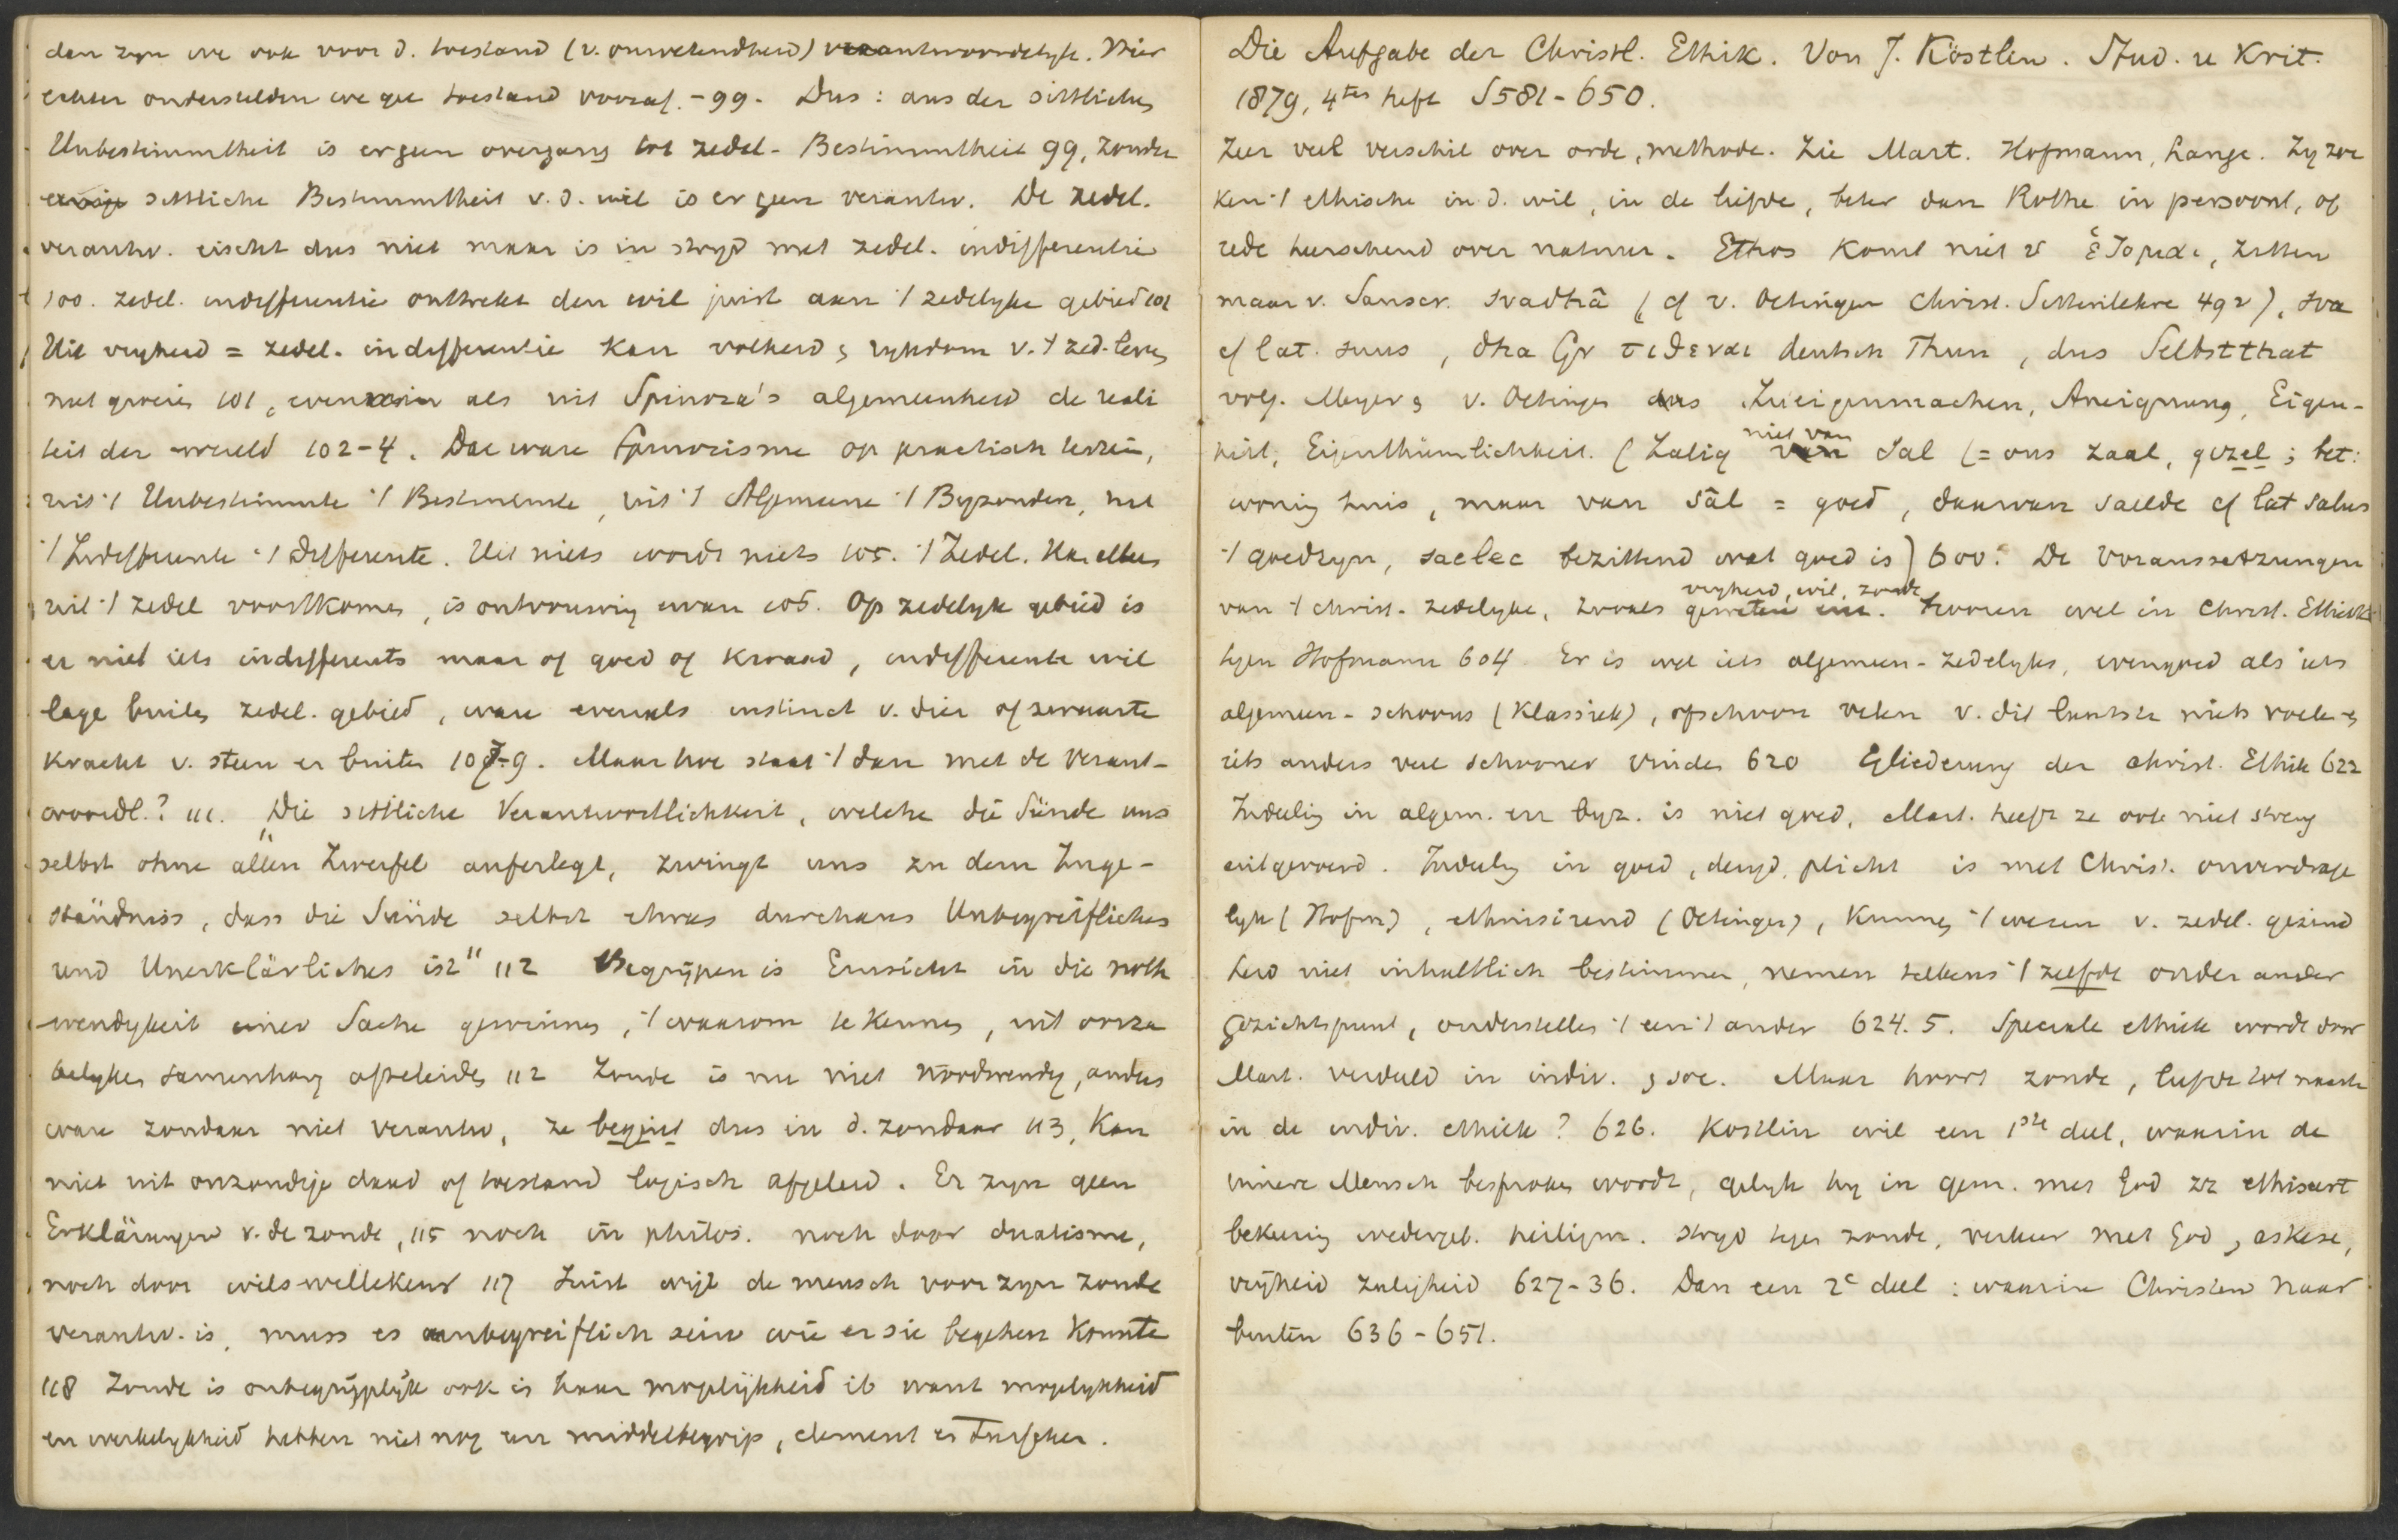 dan zyn we ook voor d. toestand (v. onwetendheid) verantwoordelyk. Hier
echter onderstelden we gee toestand vooraf. - 99. Dus: aus der sittlichen
Unbestimmtheit is er geen overgang tot zedel. Bestimmtheit 99, zonder
eenige sittliche Bestimmtheit v. d. wil is er geen verantw. De zedel.
verantw. eischt dus niet maar is in stryd met zedel. indifferentie
100. zedel. indifferentie onttrekt den wil juist aan 't zedelyke gebied 101
Uit vryheid = zedel. indifferentie kan volheid & rykdom v. 't zed. leven
niet groeien 101, evenmin als uit Spinoza's algemeenheid de reali
teit der wereld 102-4. Dat ware Spinozisme op practisch terrein,
uit 't Unbestimmte 't Bestimmte, uit 't Algemeene 't Byzondere, uit
't Indifferente 't Differente. Uit niets wordt niets 105. 't Zedel. kan alleen
uit 't zedel voortkomen, is ontvouwing ervan 106. Op zedelyk gebied is
er niet iets indifferents maar of goed of kwaad, indifferente wil
lage buiten zedel. gebied, ware evenals instinct v. dier of zwaarte
kracht v. steen er buiten 107-9. Maar hoe staat 't dan met de verant-
woordl.? 111. "Die sittliche Verantwortlichkeit, welche die Sünde uns
selbst ohne allen Zweifel auferlegt, zwingt uns zu dem Zuge-
ständniss, dass die Sünde selbst etwas durchaus Unbegreifliches
und Unerklärliches ist" 112 Begrijpen is Einsicht in die noth
wendigkeit einer Sache gewinnen, 't waarom te kennen, uit oorza
kelyken samenhang afleiden 112 Zonde is nu niet noodwendig, anders
ware zondaar niet verantw, ze begint dus in d. zondaar 113, kan
niet uit onzondige daad of toestand logisch afgeleid. Er zyn geen
Erklärungen v. de zonde, 115 noch in philos. noch door dualisme,
noch door wilswillekeur 117 Juist wijl de mensch voor zyn zonde
verantw. is, muss es unbegreiflich sein wie er sie begehen konnte
118 Zonde is onbegrijplijk ook is haar mogelijkheid ib want mogelykheid
en werkelykheid hebben niet nog een middelbegrip, element er tusschen.
Die Aufgabe der Christl. Ethik. Von J. Köstlin. Stud. u Krit.
1879, 4tes heft S 581-650.
Zeer veel verschil over orde, methode. Zie Mart. Hofmann, Lange. Zy zoe
ken 't ethische in d. wil, in de liefde, beter dan Rothe in persoonl, of
rede heerschend over natuur. Ethos komt niet v ἕζομαι, zitten
maar v. Sanscr. svadhâ (cf v. Oetingen Christ. Sittenlehre 492), sva
cf lat. suus, dha Gr τιθεναι deutsch Thun, dus Selbstthat
volg. Meyer & v. Oettingen dus Zueigenmachen, Aneignung, Eigen-
heit, Eigenthümlichkeit. (Zalig niet van Sal (= ons zaal, gezel; bet:
woning huis, maar van sâl = goed, daarvan saelde cf lat salus
't goedzyn, saelec bezittend wat goed is) 600. De Voraussetzungen
van 't christ. zedelyke, zooals vryheid, wil, zonde geweten enz. hooren wel in Christ. Ethiek
tegen Hofmann 604. Er is wel iets algemeen-zedelyks, evengoed als iets
algemeen-schoons (klassiek), ofschoon velen v. dit laatste niets voelen &
iets anders veel schooner vinden 620 Gliederung der christ. Ethik 622
Indeeling in algem. en byz. is niet goed, Mart. heeft ze ook niet streng
uitgevoerd. Indeeling in goed, deugd, plicht is met Christ. onverdrage
lyk (Hofm), ethnisirend (Oetingen), kunnen 't wezen v. zedel. gezind
heid niet inhaltlich bestimmen, nemen telkens 't zelfde onder ander
gezichtspunt, onderstellen 't een 't ander 624. 5. Speciale ethiek wordt door
Mart. verdeeld in indiv. & soc. Maar hoort zonde, liefde tot naaste
in de indiv. ethiek? 626. Kostlin wil een 1ste deel, waarin de
innere Mensch besproken wordt, gelyk hy in gem. met God zz ethiseert
bekeering wedergeb. heiligm. stryd tegen zonde, verkeer met God, askese,
vrijheid zaligheid 627-36. Dan een 2e deel: waarin Christen naar
buiten 636-651.